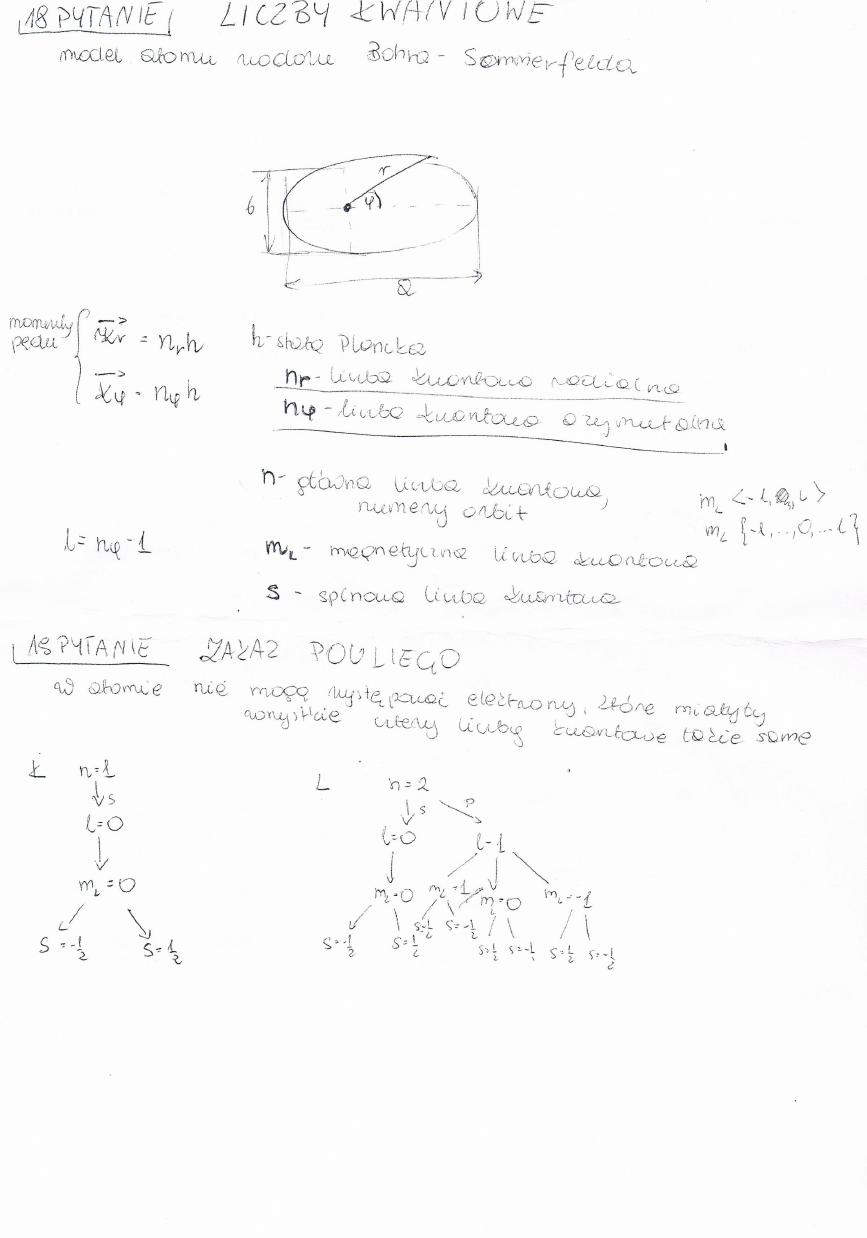 18 PYTANIE LICZBY KWANTOWE
model atomu wodoru Bohra - Sommerfelda
r
b
φ
a
momenty
pędu
= nᵣh
h - stała Plancka
= nφ h
nᵣ - liczba kwantowa radialna
nφ - liczba kwantowa azymutalna
n - główna liczba kwantowa,
numery orbit
m_L <-l, 0, l>
m_L {-l,..,0,...l}
l = nφ - 1
m_L - magnetyczna liczba kwantowa
s - spinowa liczba kwantowa
19 PYTANIE ZAKAZ POULIEGO
w atomie nie mogą występować elektrony, które miałyby
wszystkie cztery liczby kwantowe takie same
K n=1
s
l=0
m_L = 0
S = -1/2 S = 1/2
L n = 2
s p
l=0 l=1
m_L=0 m_L=1 m_L=0 m_L=-1
S=-1/2 S=1/2 S=1/2 S=-1/2 S=1/2 S=-1/2 S=1/2 S=-1/2